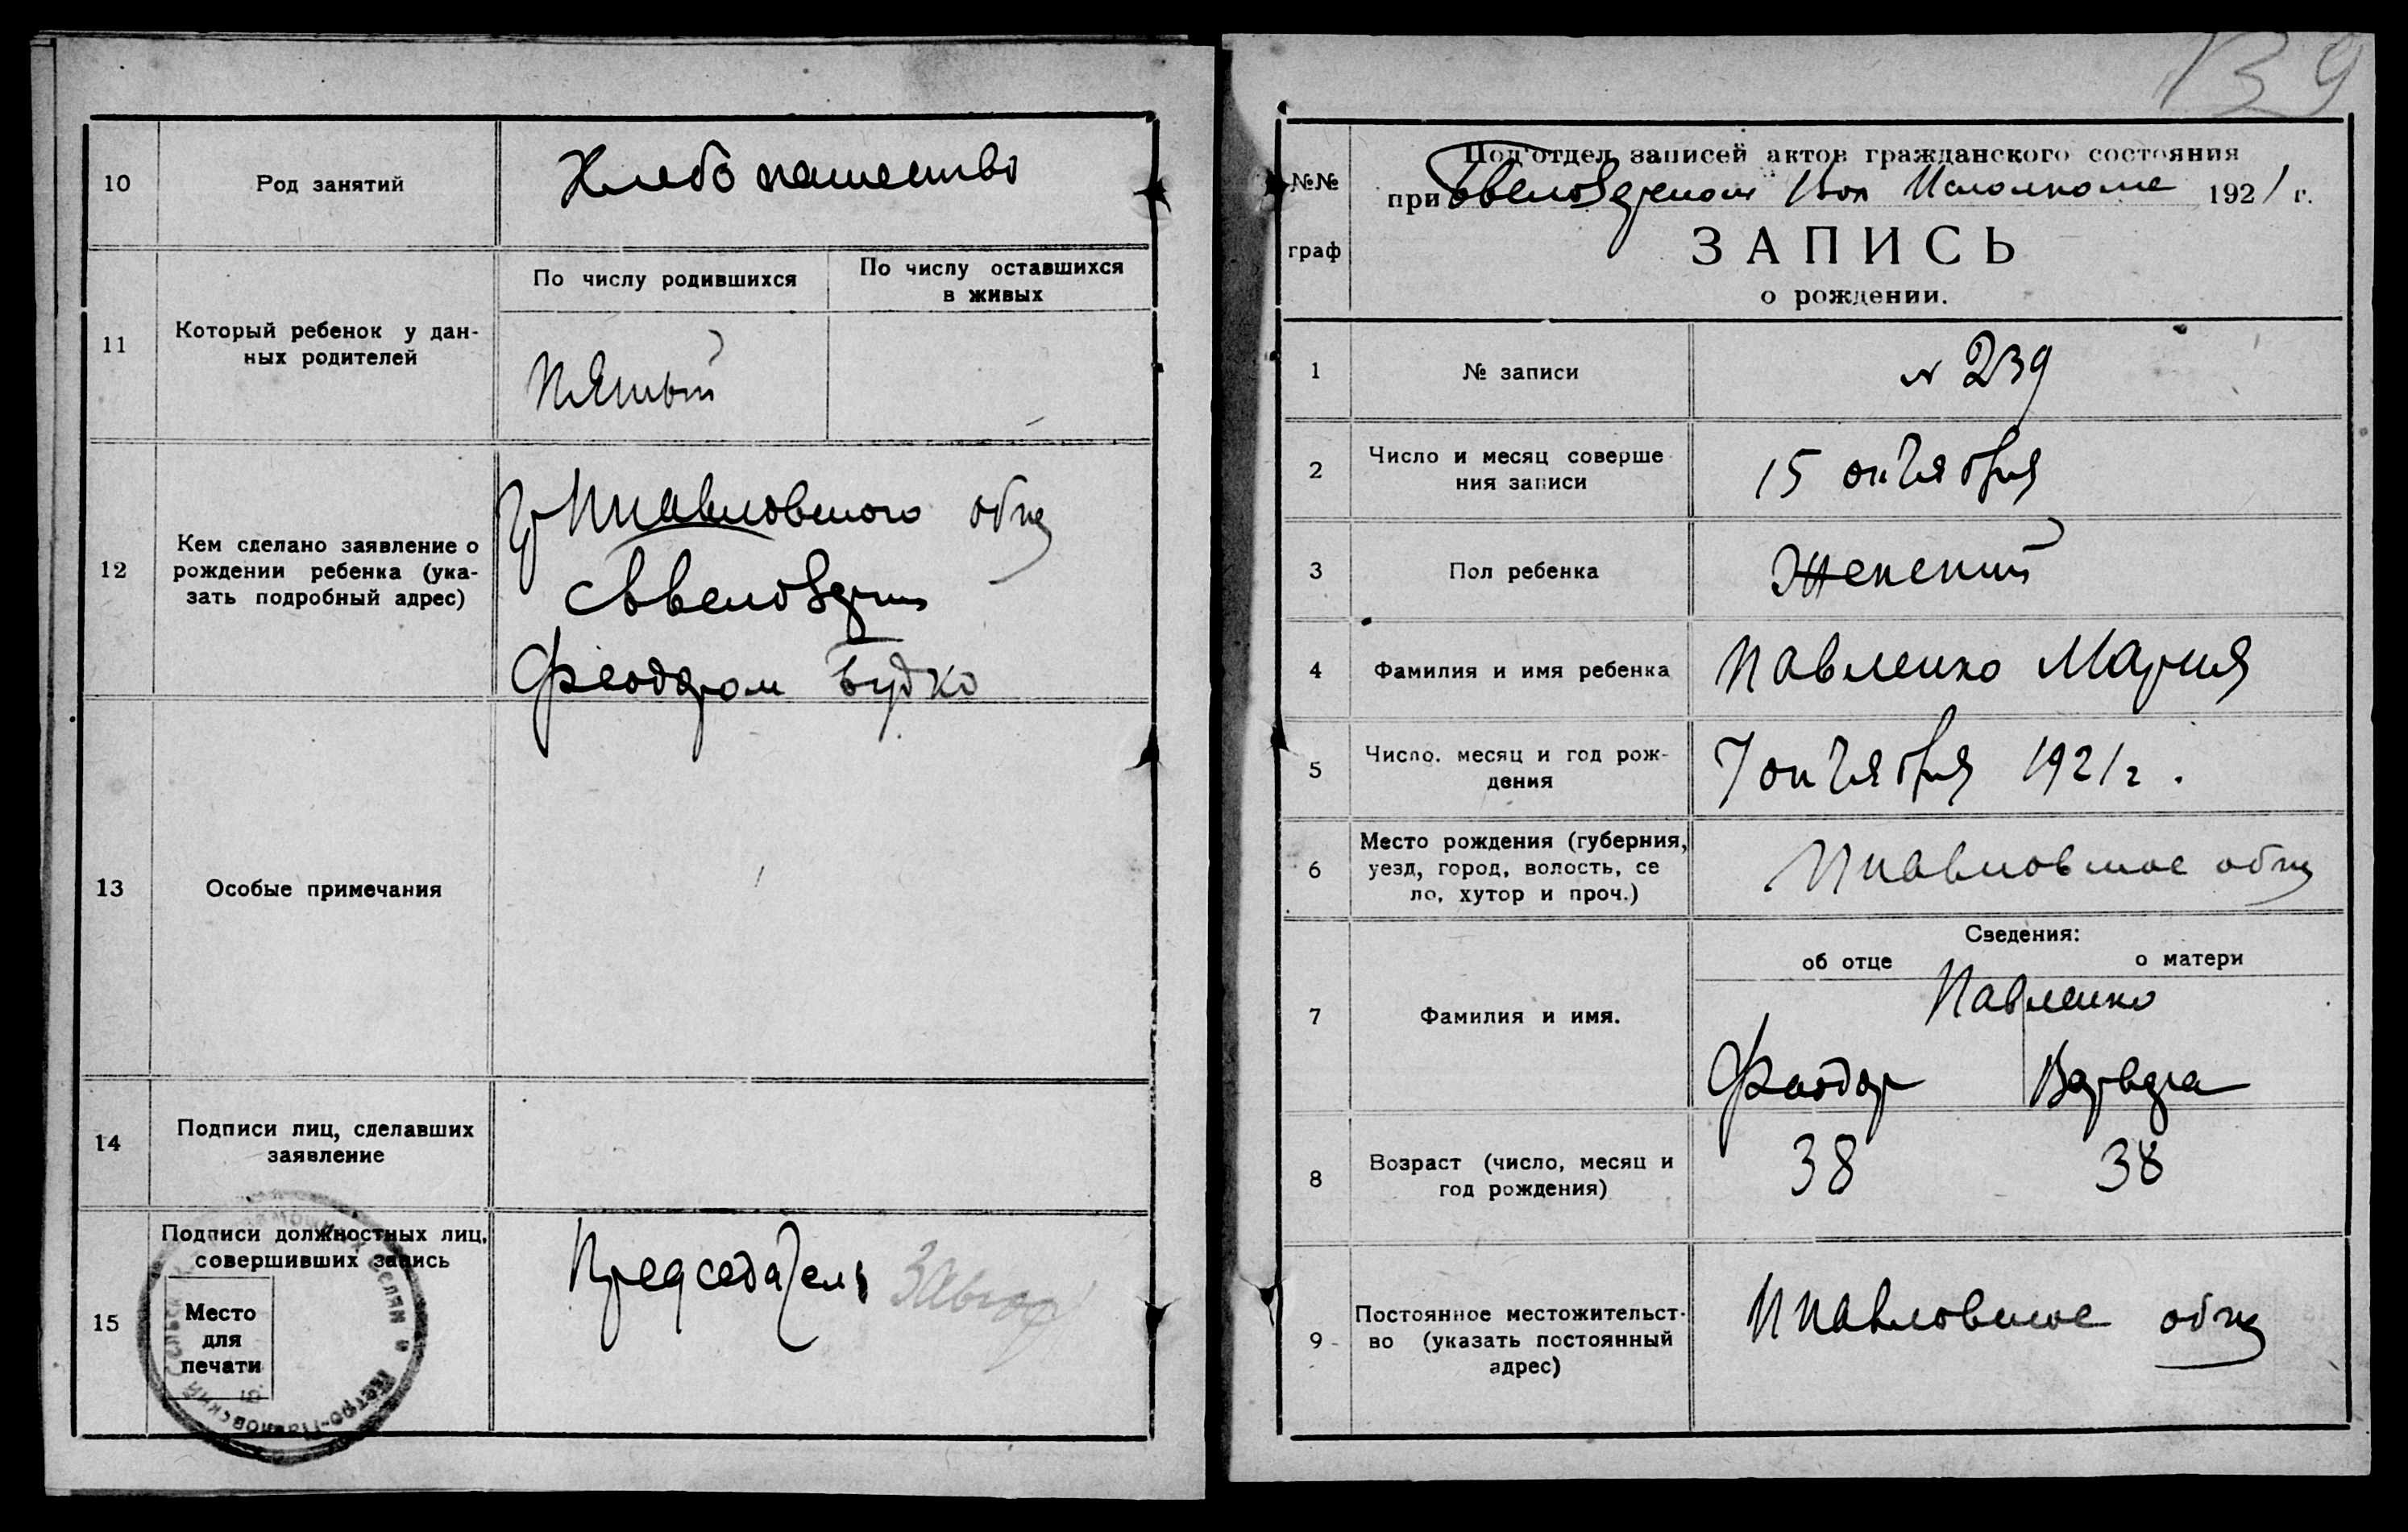 10
Род занятий
Хлебопашество
11
Который ребенок у дан-
ных родителей
По числу родившихся
По числу оставшихся
в живых
Пятый
12
Кем сделано заявление о
рождении ребенка (ука-
зать подробный адрес)
общ
Феодором Будко
13
Особые примечания
14
Подписи лиц, сделавших
заявление
15
Подписи должностных лиц,
совершивших запись
Место
для
печати
Петро-Павловский
Председатель
139
№№
граф
Под'отдел записей актов гражданского состояния
при Вол Исполкоме 1921 г.
ЗАПИСЬ
о рождении.
1
№ записи
№ 239
2
Число и месяц соверше
ния записи
15 октября
3
Пол ребенка
Женский
4
Фамилия и имя ребенка
Павленко Мария
5
Число. месяц и год рож-
дения
7 октября 1921 г.
6
Место рождения (губерния,
уезд, город, волость, се
ло, хутор и проч.)
Ппавловское общ
7
Фамилия и имя.
Сведения:
об отце
о матери
Павленко
Феодор
Варвара
8
Возраст (число, месяц и
год рождения)
38
38
9
Постоянное местожительст-
во (указать постоянный
адрес)
Ппавловское общ